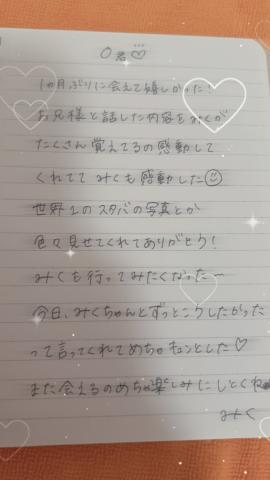 O君♡
1ヶ月ぶりに会えて嬉しかった!
お兄様と話した内容をみくが
たくさん覚えてるの感動して
くれてて みくも感動した☺
世界1のスタバの写真とか
色々見せてくれてありがとう!
みくも行ってみたくなったー
今日、みくちゃんとずっとこうしたかった
って言ってくれてめちゃキュンとした♡
また会えるのめちゃ楽しみにしとくね
みく